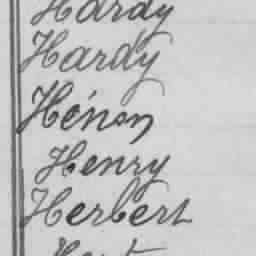 Hardy
Hardy
Hénon
Henry
Herbert